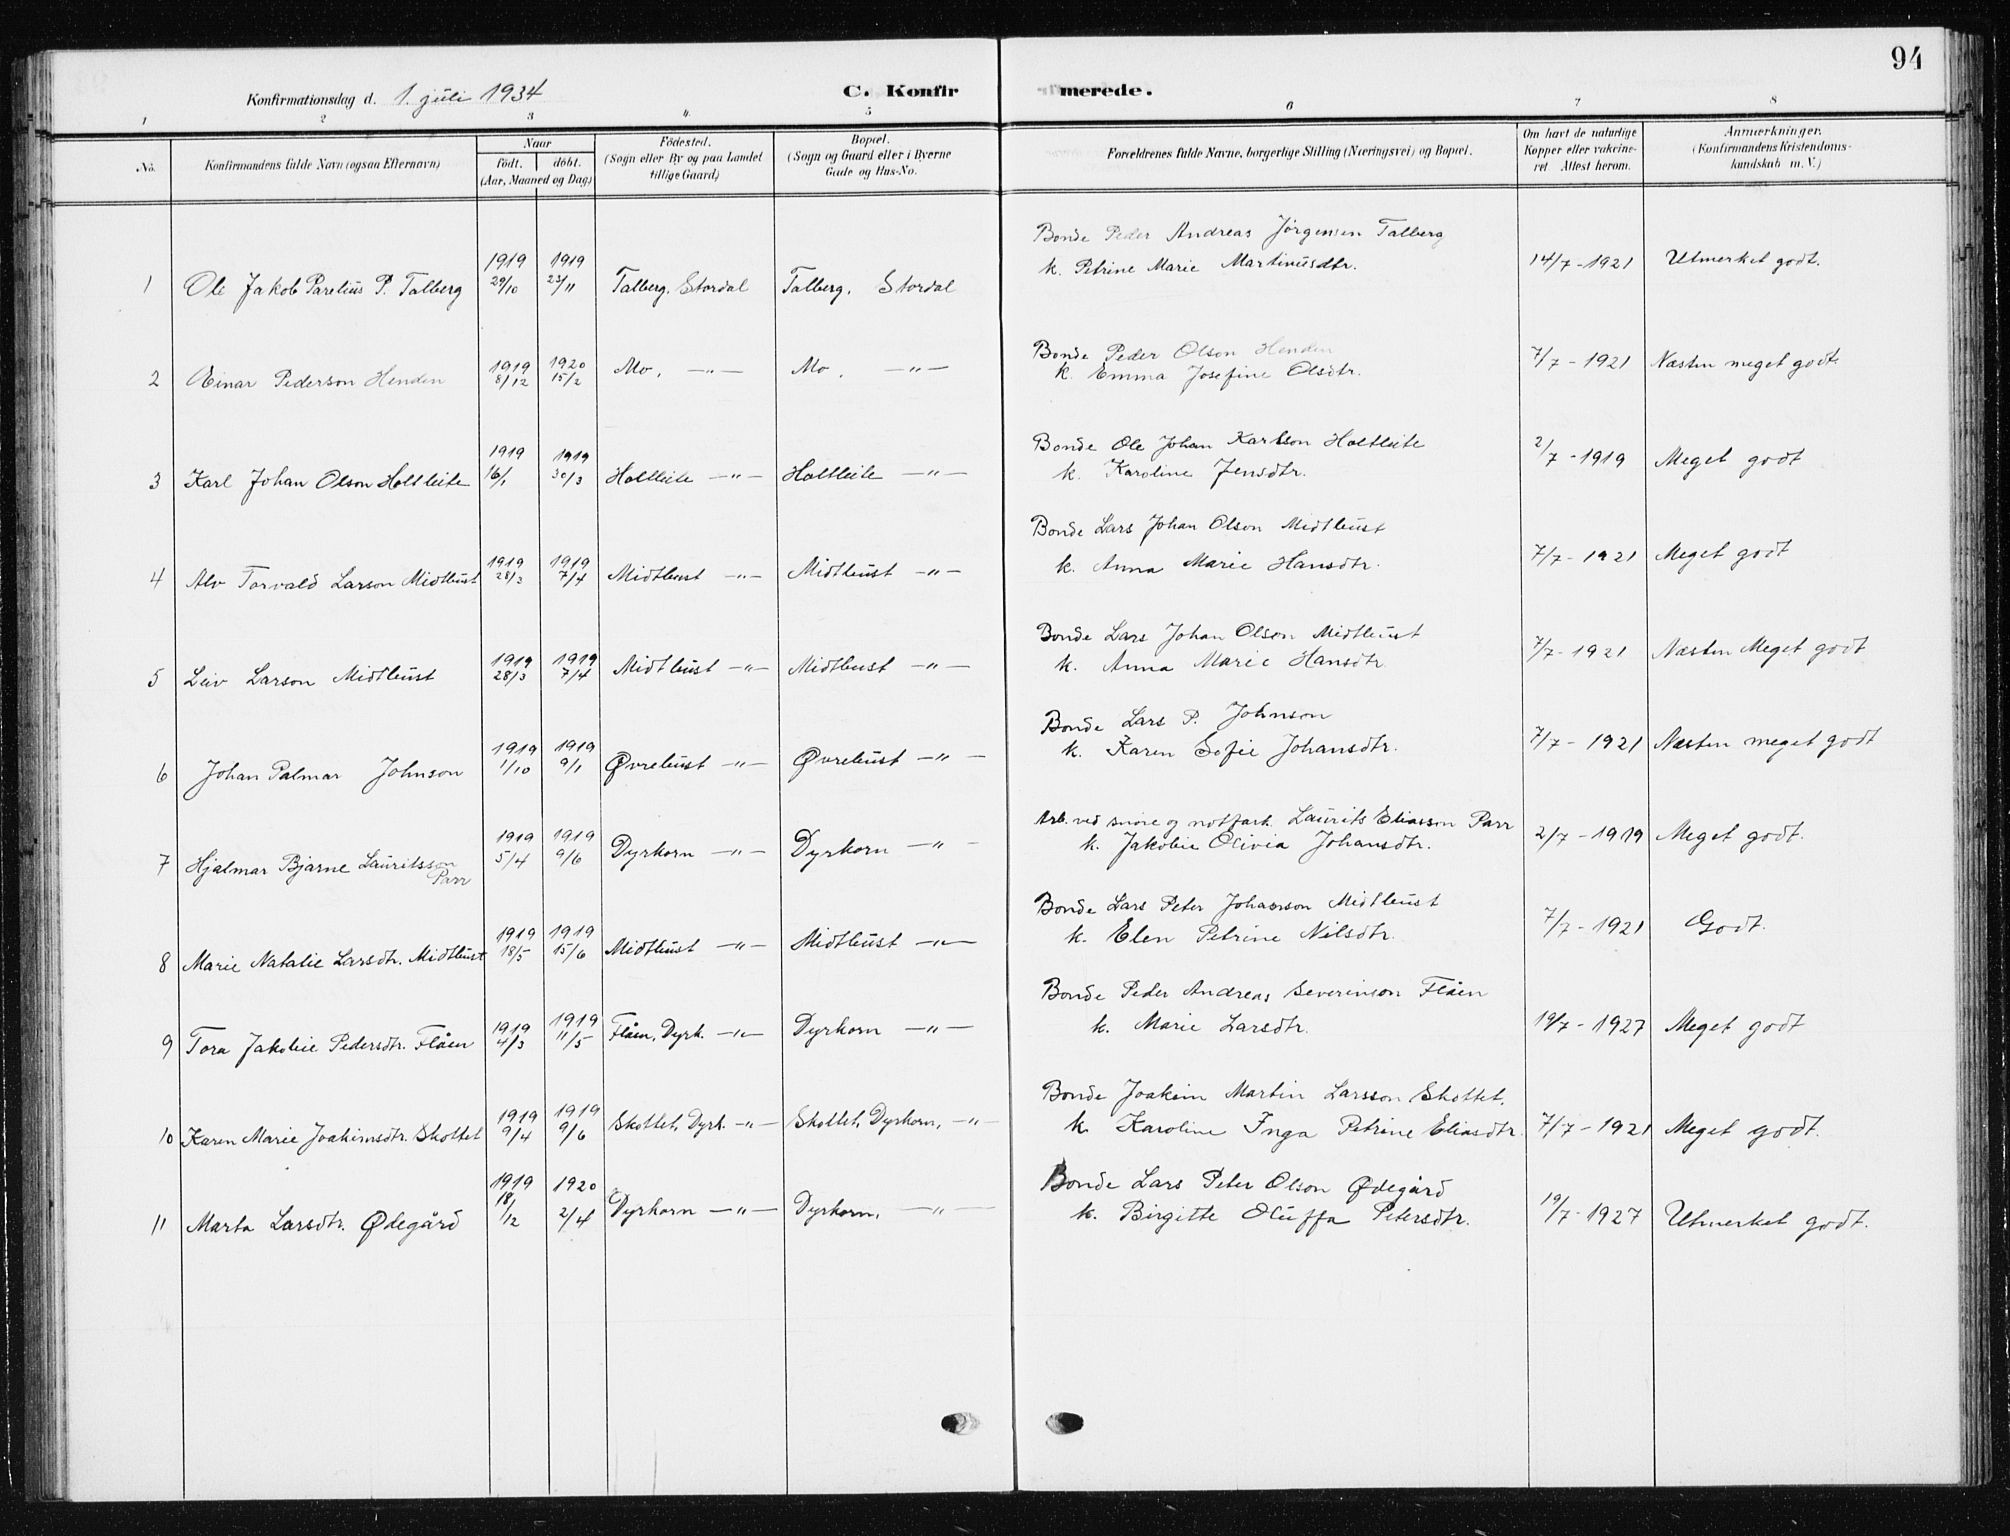 94
Konfirmationsdag d. 1. juli 1934
C. Konfirmerede.
1 2 3 4 5 6 7 8
No. Konfirmandens fulde Navn (ogsaa Efternavn) Naar født. døbt. (Aar, Maaned og Dag) Fødested. (Sogn eller By og paa Landet tillige Gaard) Bopæl. (Sogn og Gaard eller i Byerne Gade og Hus-No. Forældrenes fulde Navne, borgerlige Stilling (Næringsvei) og Bopæl. Om havt de naturlige Kopper eller vakcineret Attest herom. Anmærkninger. (Konfirmandens Kristendomskundskab m. V.)
Bonde Peder Andreas Jørgensen Talberg
1 Ole Jakob Parelius P. Talberg 1919 29/10 1919 23/11 Talberg, Stordal Talberg, Stordal k. Petrine Marie Martinusdtr. 14/7-1921 Utmerket godt.
Bonde Peder Olson Henden
2 Einar Pederson Henden 1919 8/12 1920 15/2 Mo, —"— Mo, —"— k. Emma Josefine Olsdtr. 7/7-1921 Næsten meget godt.
Bonde Ole Johan Karlson Holtleite
3 Karl Johan Olson Holtleite 1919 16/1 1919 30/3 Holtleite —"— Holtleite —"— k. Karoline Jensdtr. 2/7-1919 Meget godt
Bonde Lars Johan Olson Midtbust
4 Alv Torvald Larson Midtbust 1919 28/3 1919 7/4 Midtbust —"— Midtbust —"— k. Anna Marie Hansdtr. 7/7-1921 Meget godt
Bonde Lars Johan Olson Midtbust
5 Leiv Larson Midtbust 1919 28/3 1919 7/4 Midtbust —"— Midtbust —"— k. Anna Marie Hansdtr 7/7-1921 Næsten Meget godt
Bonde Lars P. Johnson
6 Johan Palmar Johnson 1919 1/10 1919 9/1 Øvrebust —"— Øvrebust —"— k. Karen Sofie Johansdtr. 7/7-1921 Næsten meget godt
Arb. ved snøre og notfabr. Laurits Eliasson Parr
7 Hjalmar Bjarne Lauritsson Parr 1919 5/4 1919 9/6 Dyrkorn —"— Dyrkorn —"— k. Jakobie Olivia Johansdtr. 2/7-1919 Meget godt.
Bonde Lars Peter Johansson Midtbust
8 Marie Natalie Larsdtr. Midtbust 1919 18/5 1919 15/6 Midtbust —"— Midtbust —"— k. Elen Petrine Nilsdtr. 7/7-1921 Godt.
Bonde Peder Andreas Severinson Flåen
9 Tora Jakobie Pedersdtr. Flåen 1919 4/3 1919 11/5 Flåen, Dyrk. —"— Dyrkorn —"— k. Marie Larsdtr. 19/7-1927 Meget godt
Bonde Joakim Martin Larsson Skottet.
10 Karen Marie Joakimsdtr. Skottet 1919 9/4 1919 9/6 Skottet, Dyrk. —"— Skottet, Dyrkorn, —"— k. Karoline Inga Petrine Eliasdtr. 7/7-1921 Meget godt.
Bonde Lars Peter Olson Ødegård
11 Marta Larsdtr. Ødegård 1919 18/12 1920 2/4 Dyrkorn —"— Dyrkorn, —"— k. Birgitte Petersdtr. 19/7-1927 Utmerket godt.